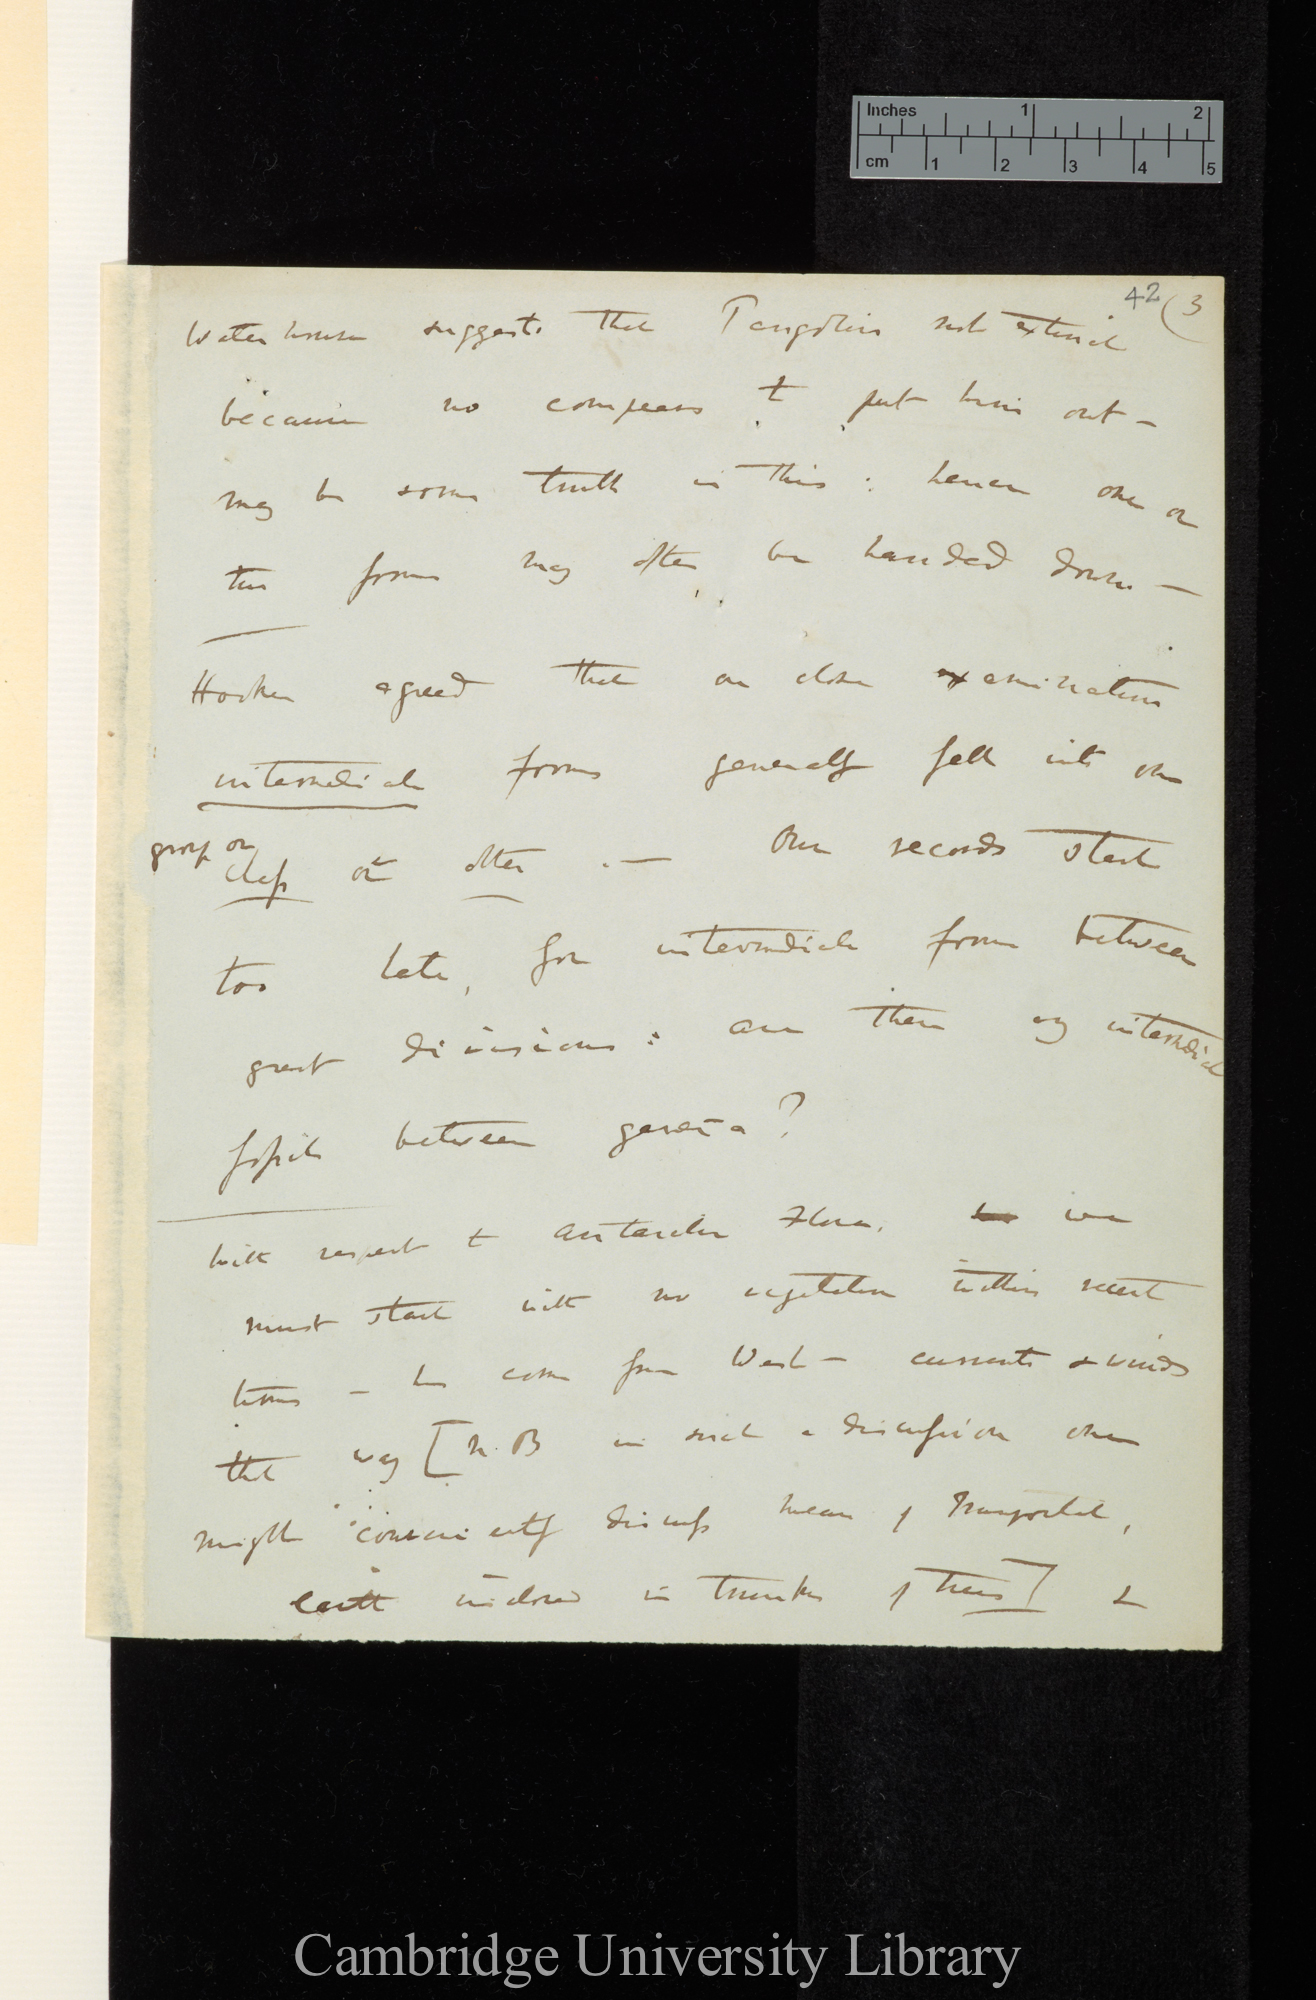 Inches 1 2
cm 1 2 3 4 5
42 (3
Waterhouse suggests that Pangolins not extinct
because no compeers to put him out —
may be some truth in this: hence one or
two forms may often be handed down —
Hooker agreed that on close examination
intermediate forms generally fell into one
group or
class or other. — Our records start
too late, for intermediate forms between
great divisions: are there any intermediate
fossils between genera?
With respect to Antarctic Flora, we
must start with no vegetation within recent
times — has come from West — currents & winds
that way [N.B in such a discussion one
might conveniently discuss means of transportal,
earth inclosed in trunks of trees] &
Cambridge University Library